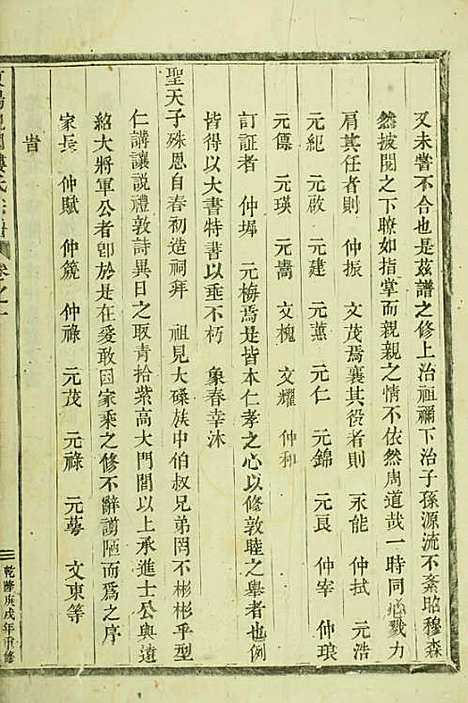 又未嘗不合也是茲譜之修上治祖禰下治子孫源流不紊昭穆森
然披閱之下瞭如指掌而親親之情不依然周道哉一時同心戮力
肩其任者則　仲振　文茂焉襄其役者則　永能　仲拭　元浩
元紀　元啟　元建　元薰　元仁　元錦　元良　仲宰　仲琅
元傃　元瑛　元嵩　文槐　文耀　仲和
訂証者　仲墀　元梅焉是皆本仁孝之心以修敦睦之舉者也例
皆得以大書特書以垂不朽　象春幸沐
聖天子殊恩自春初造祠拜　祖見大磉族中伯叔兄弟罔不彬彬乎型
仁講讓說禮敦詩異日之取青拾紫高大門閭以上承進士公與遠
紹大將軍公者卽於是在爰敢因家乘之修不辭譾陋而爲之序
旹
家長　仲賦　仲箎　仲祿　元茂　元祿　元蕚　文東等
宗譜　卷之一
乾隆庚戌年重修